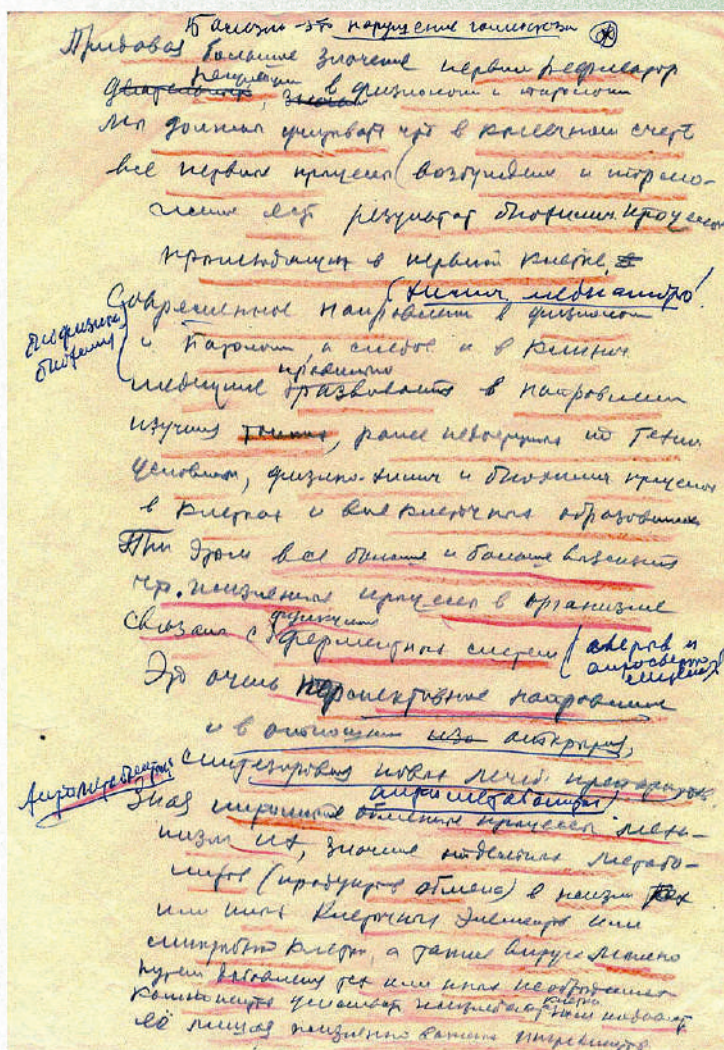 Болезнь - это нарушение гомеостаза
Придавая большое значение нервн. рефлектор
реакциям в физиологии и патологии
мы должны учитывать что в конечном счете
все нервные процессы (возбуждение и тормо-
жение есть результат биохимич. процессов
происходящих в нервной клетке
(химич. медиаторы!
Современное направлен в физиологии
биофизика
биохимия
и патологии а следов. и в клинич
медицине правильно развивается в направлении
изучения тонких, ранее недоступных по техн
условиям, физико-химич и биохимич процессов
в клетках и вне клеточных образованиях
При этом все больше и больше выясняют
что жизненные процессы в организме
связаны с функцией ферментных систем
Это очень перспективное направление
и в отношении изо открытия,
Антиметаболиты синтезирования новых лечебн. препаратов
антиметаболиты)
Зная обменные процессы меха-
низм их, значение отдельных метабо-
литов (продуктов обмена) в жизни тех
или иных клеточных элементов или
микробной клетки, а также вируса можно
путем тех или иных необходимых
компонента клетки
её лишая жизненно важных ингредиентов